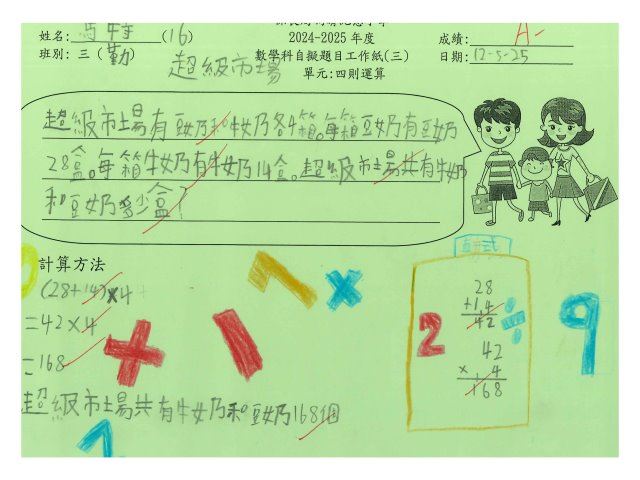 姓名: 馬特 (16)
2024-2025 年度
成績: A-
班別: 三 (勤)
數學科自擬題目工作紙(三)
日期: 12-5-25
超級市場
單元:四則運算
超級市場有豆奶和牛奶各4箱。每箱豆奶有豆奶
28盒。每箱牛奶有牛奶14盒。超級市場共有牛奶
和豆奶多少盒?
直式
計算方法
(28+14)×4
=42×4
=168
28
+14
42
42
× 4
168
+ 1 1 × 2 ÷ 9
超級市場共有牛奶和豆奶168個